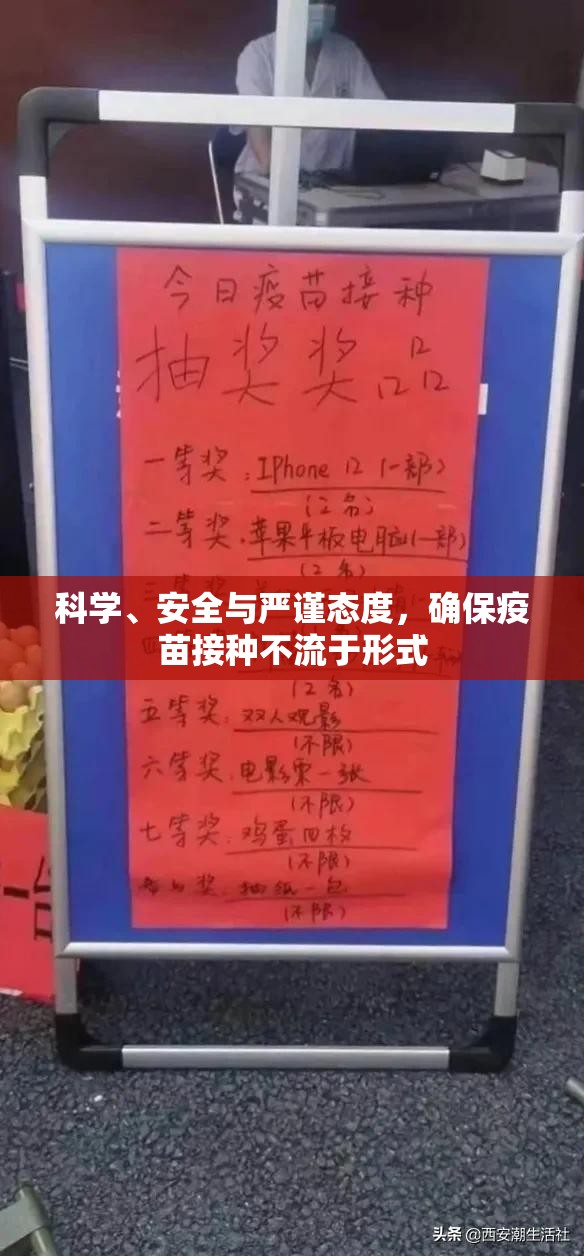 今日疫苗接种
抽奖奖品
一等奖：IPhone 12（一部）
（2名）
二等奖：苹果平板电脑（一部）
（2名）
科学、安全与严谨态度，确保疫
苗接种不流于形式
（2名）
五等奖：双人观影
（不限）
六等奖：电影票一张
（不限）
七等奖：鸡蛋四枚
（不限）
参与奖：抽纸一包
（不限）
头条 @西安潮生活社